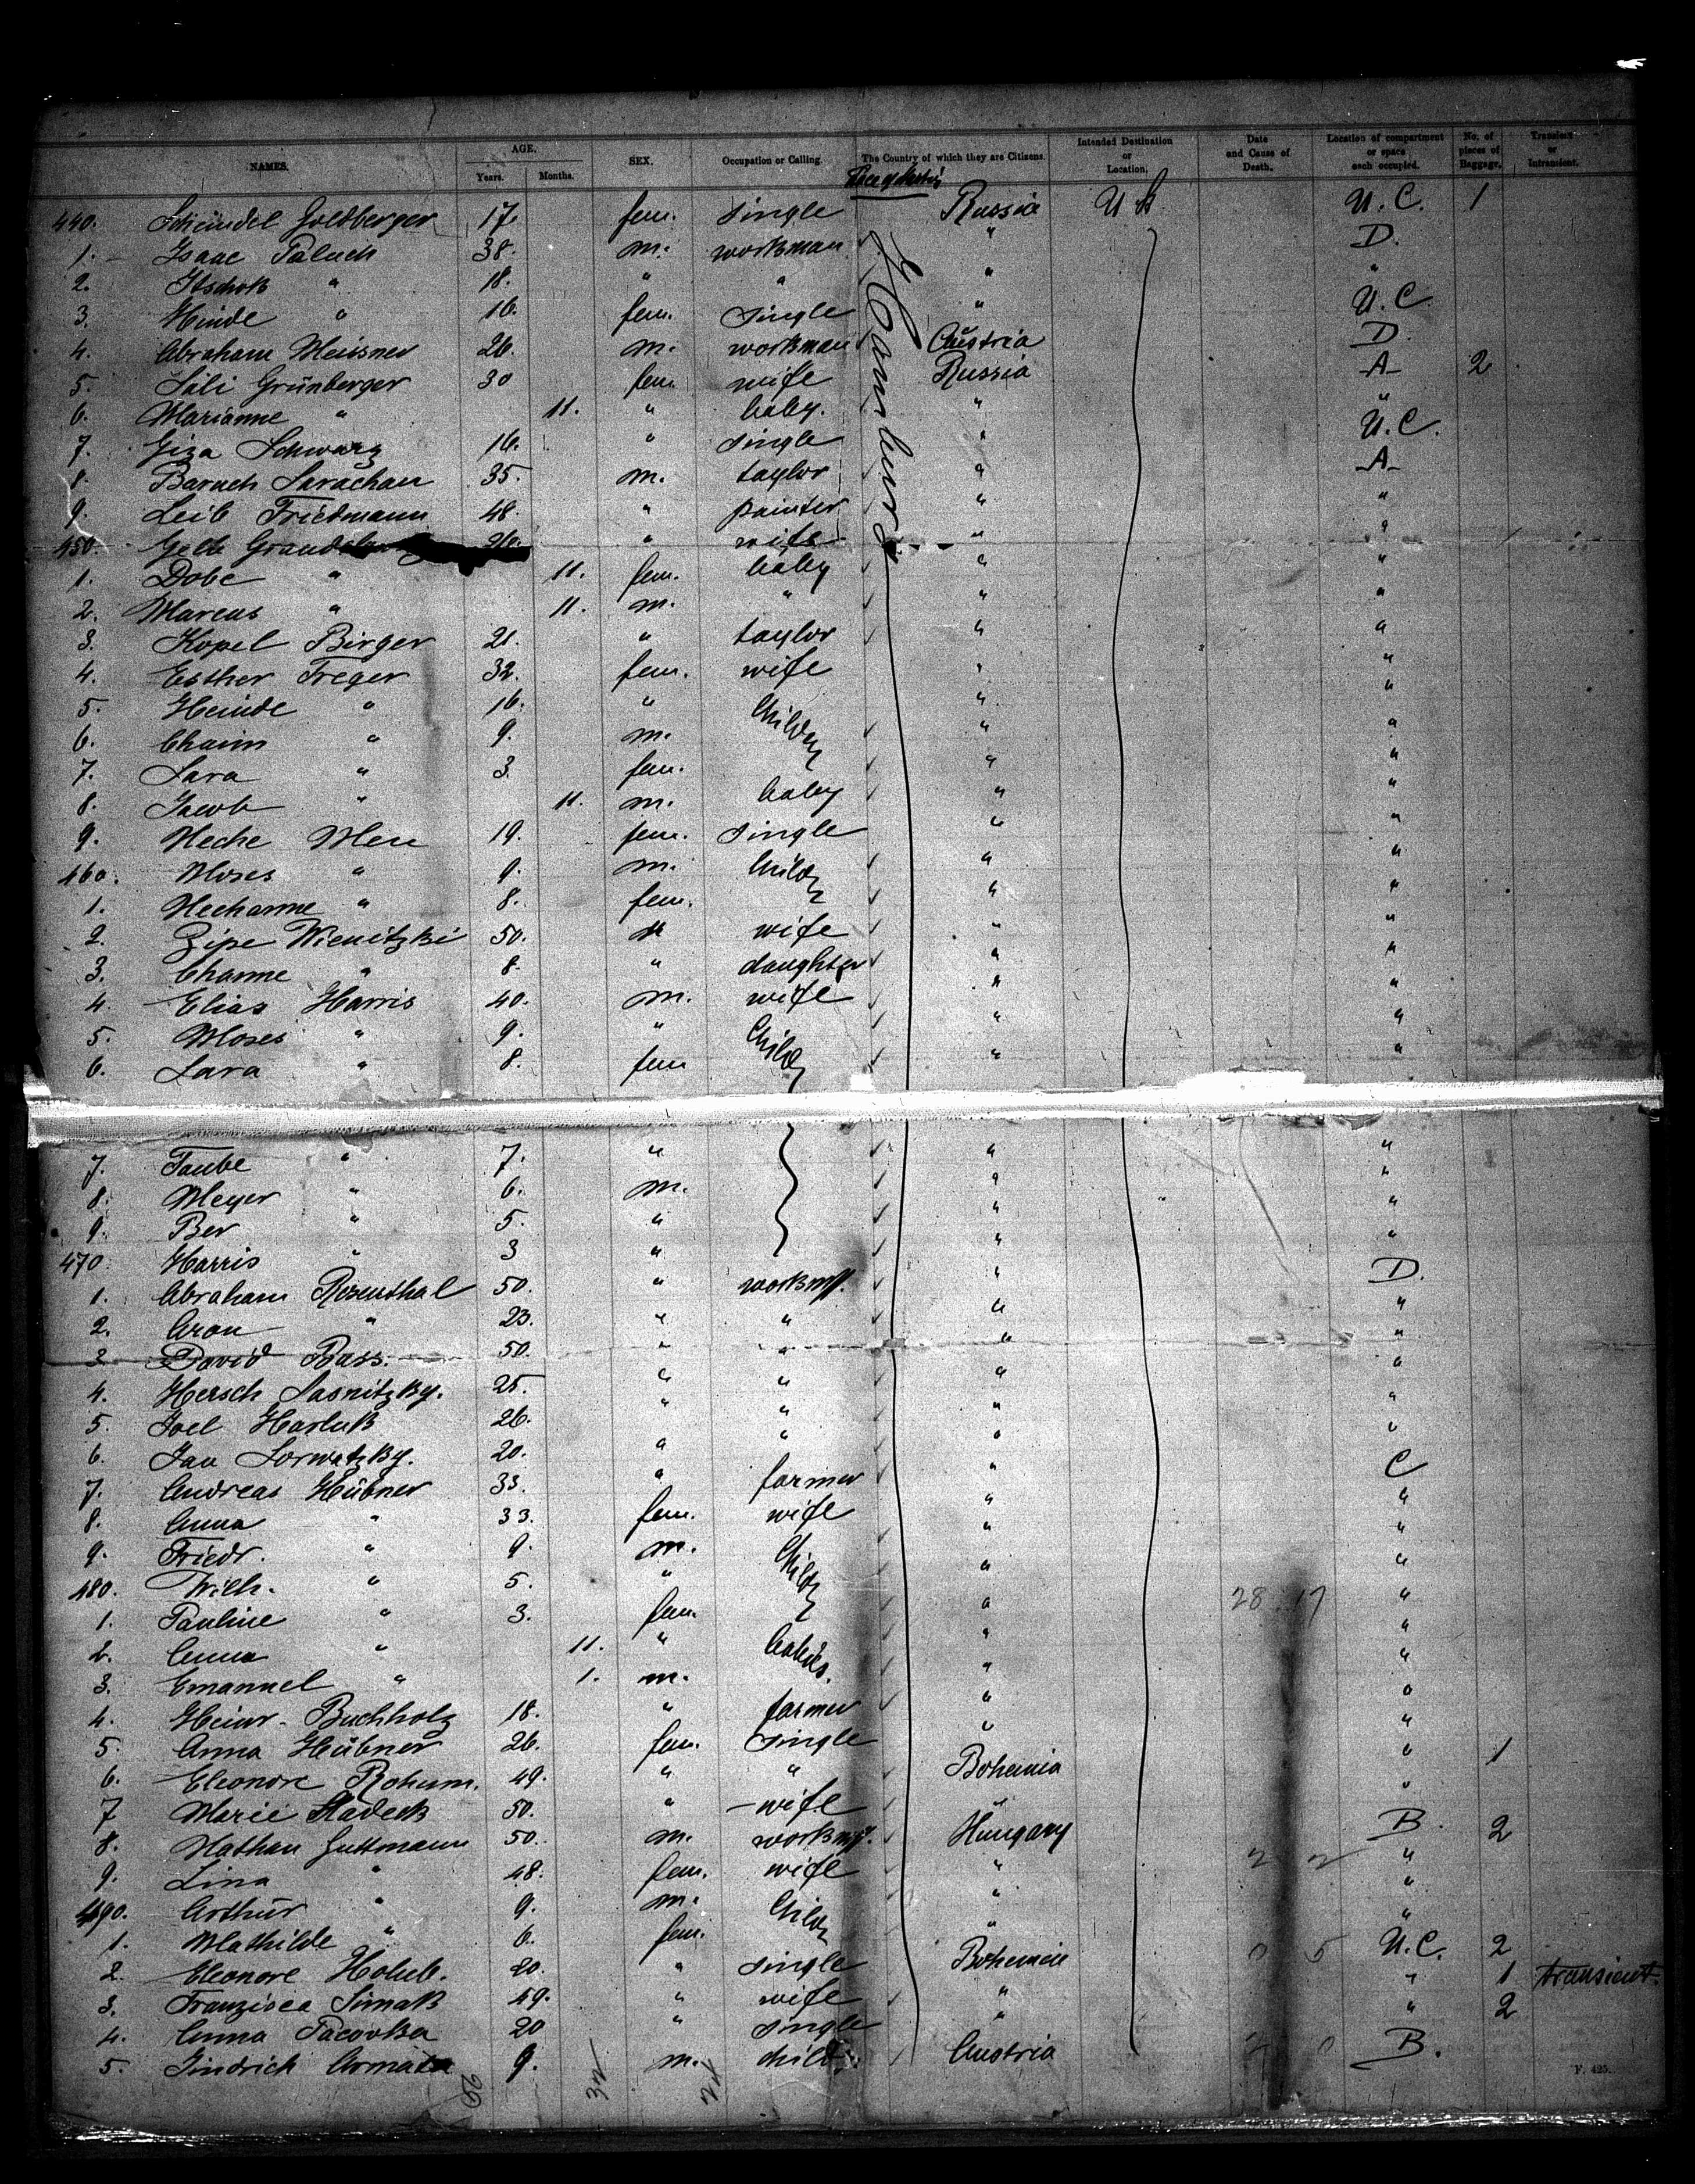 NAMES. AGE. Years. Months. SEX. Occupation or Calling. The Country of which they are Citizens. Intended Destination or Location. Date and Cause of Death. Location of compartment or space each occupied. No. of pieces of Baggage. Transient or Intransient.
Hamburg
440. Scheindel Goldberger 17. fem. single Russia U.S. U.C. 1
1. Isaac Paluch 38. m. workman " D.
2. Itschok " 18. " " " "
3. Hinde " 16. fem. single " U.C.
4. Abraham Meisner 26. m. workman Austria D.
5. Sali Grünberger 30 fem. wife Russia A 2
6. Marianne " 11. " baby. " "
7. Giza Schwarz 16. " single " U.C.
8. Baruch Sarachan 35. m. taylor " A
9. Leib Friedmann 48. " painter " "
450. Gelb 26. " wife " "
1. Dobe " 11. fem. baby " "
2. Marcus " 11. m. " " "
3. Kopel Birger 21. " taylor " "
4. Esther Treger 32. fem. wife " "
5. Heinde " 16. " Childr " "
6. Chaim " 9. m. " "
7. Sara " 3. fem. " "
8. Jacob " 11. m. baby " "
9. Neche Men 19. fem. single " "
460. Moses " 9. m. Childr " "
1. Nechamme " 8. fem. " "
2. Zipe Wienitzki 50. " wife " "
3. Channe " 8. " daughter " "
4. Elias Harris 40. m. wife " "
5. Moses " 9. " Childr " "
6. Sara " 8. fem " "
7. Taube " 7. " " "
8. Meyer " 6. m. " "
9. Ber " 5. " " "
470. Harris " 3 " " "
1. Abraham Rosenthal 50. " workm. " D.
2. Aron " 23. " " " "
3. David Bass. 50. " " " "
4. Hersch Sasnitzky. 25. " " " "
5. Joel Harluk 26. " " " "
6. Jan Sorwatzky. 20. " " " "
7. Andreas Hübner 33. " farmer " C
8. Anna " 33. fem. wife " "
9. Friedr. " 9. m. Childr " "
480. Wilh. " 5. " " " 28 17
1. Pauline " 3. fem. " "
2. Anna " 11. " babies. " "
3. Emanuel " 1. m. " "
4. Heinr. Buchholz 18. " farmer " "
5. Anna Hübner 26. fem. single " "
6. Eleonore 49. " " Bohemia " 1
7 Marie Sladeck 50. " wife " "
8. Nathan Guttmann 50. m. workm. Hungary B. 2
9. Lina " 48. fem. wife " "
490. Arthur " 9. m. Childr " "
1. Mathilde " 6. fem. " "
2. Eleonore Holub. 20. " single Bohemia U.C. 2
3. Franzisca Simak 49. " wife " " 1 transient.
4. Anna Pacovka 20 " single " " 2
5. Jindrich Armata 9. m. child Austria B.
F. 425.